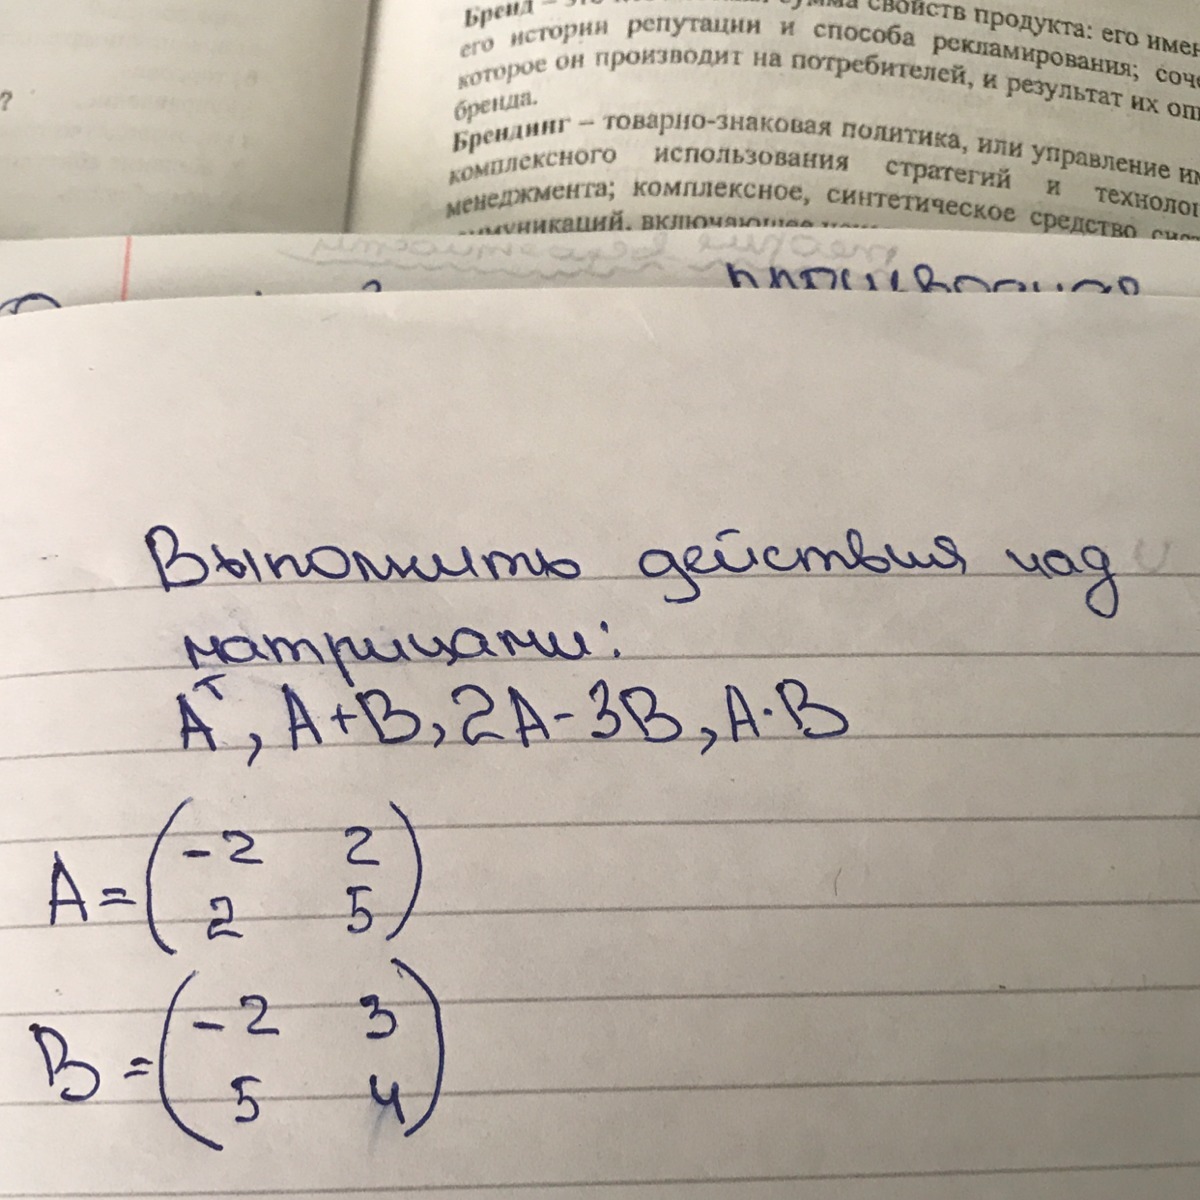 Бренд – это сумма свойств продукта: его имени
его истории репутации и способа рекламирования;
которое он производит на потребителей, и результат их
бренда.
?
Брендинг – товарно-знаковая политика, или управление
комплексного использования стратегий и
менеджмента; комплексное, синтетическое средство
включающее
Выполнить действия над
матрицами:
Aᵀ, A+B, 2A-3B, A·B
A = ( -2 2
2 5 )
B = ( -2 3
5 4 )